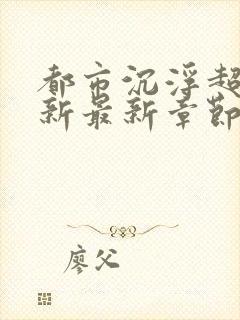 都市沉浮超
新最新章節
廖父